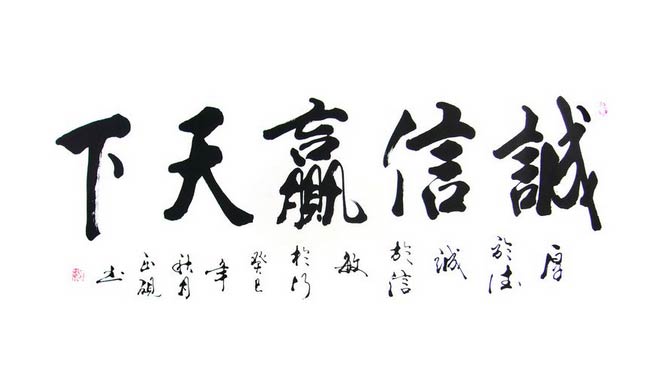 誠信贏天下
厚於德誠於信敏於行癸巳年秋月